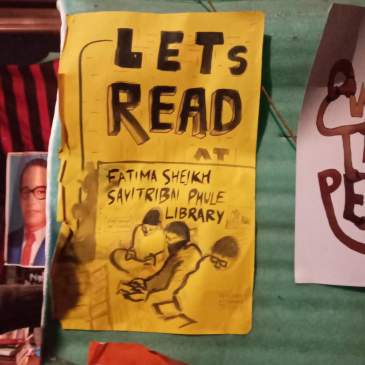 LETs
READ
AT
FATIMA SHEIKH
SAVITRIBAI PHULE
LIBRARY